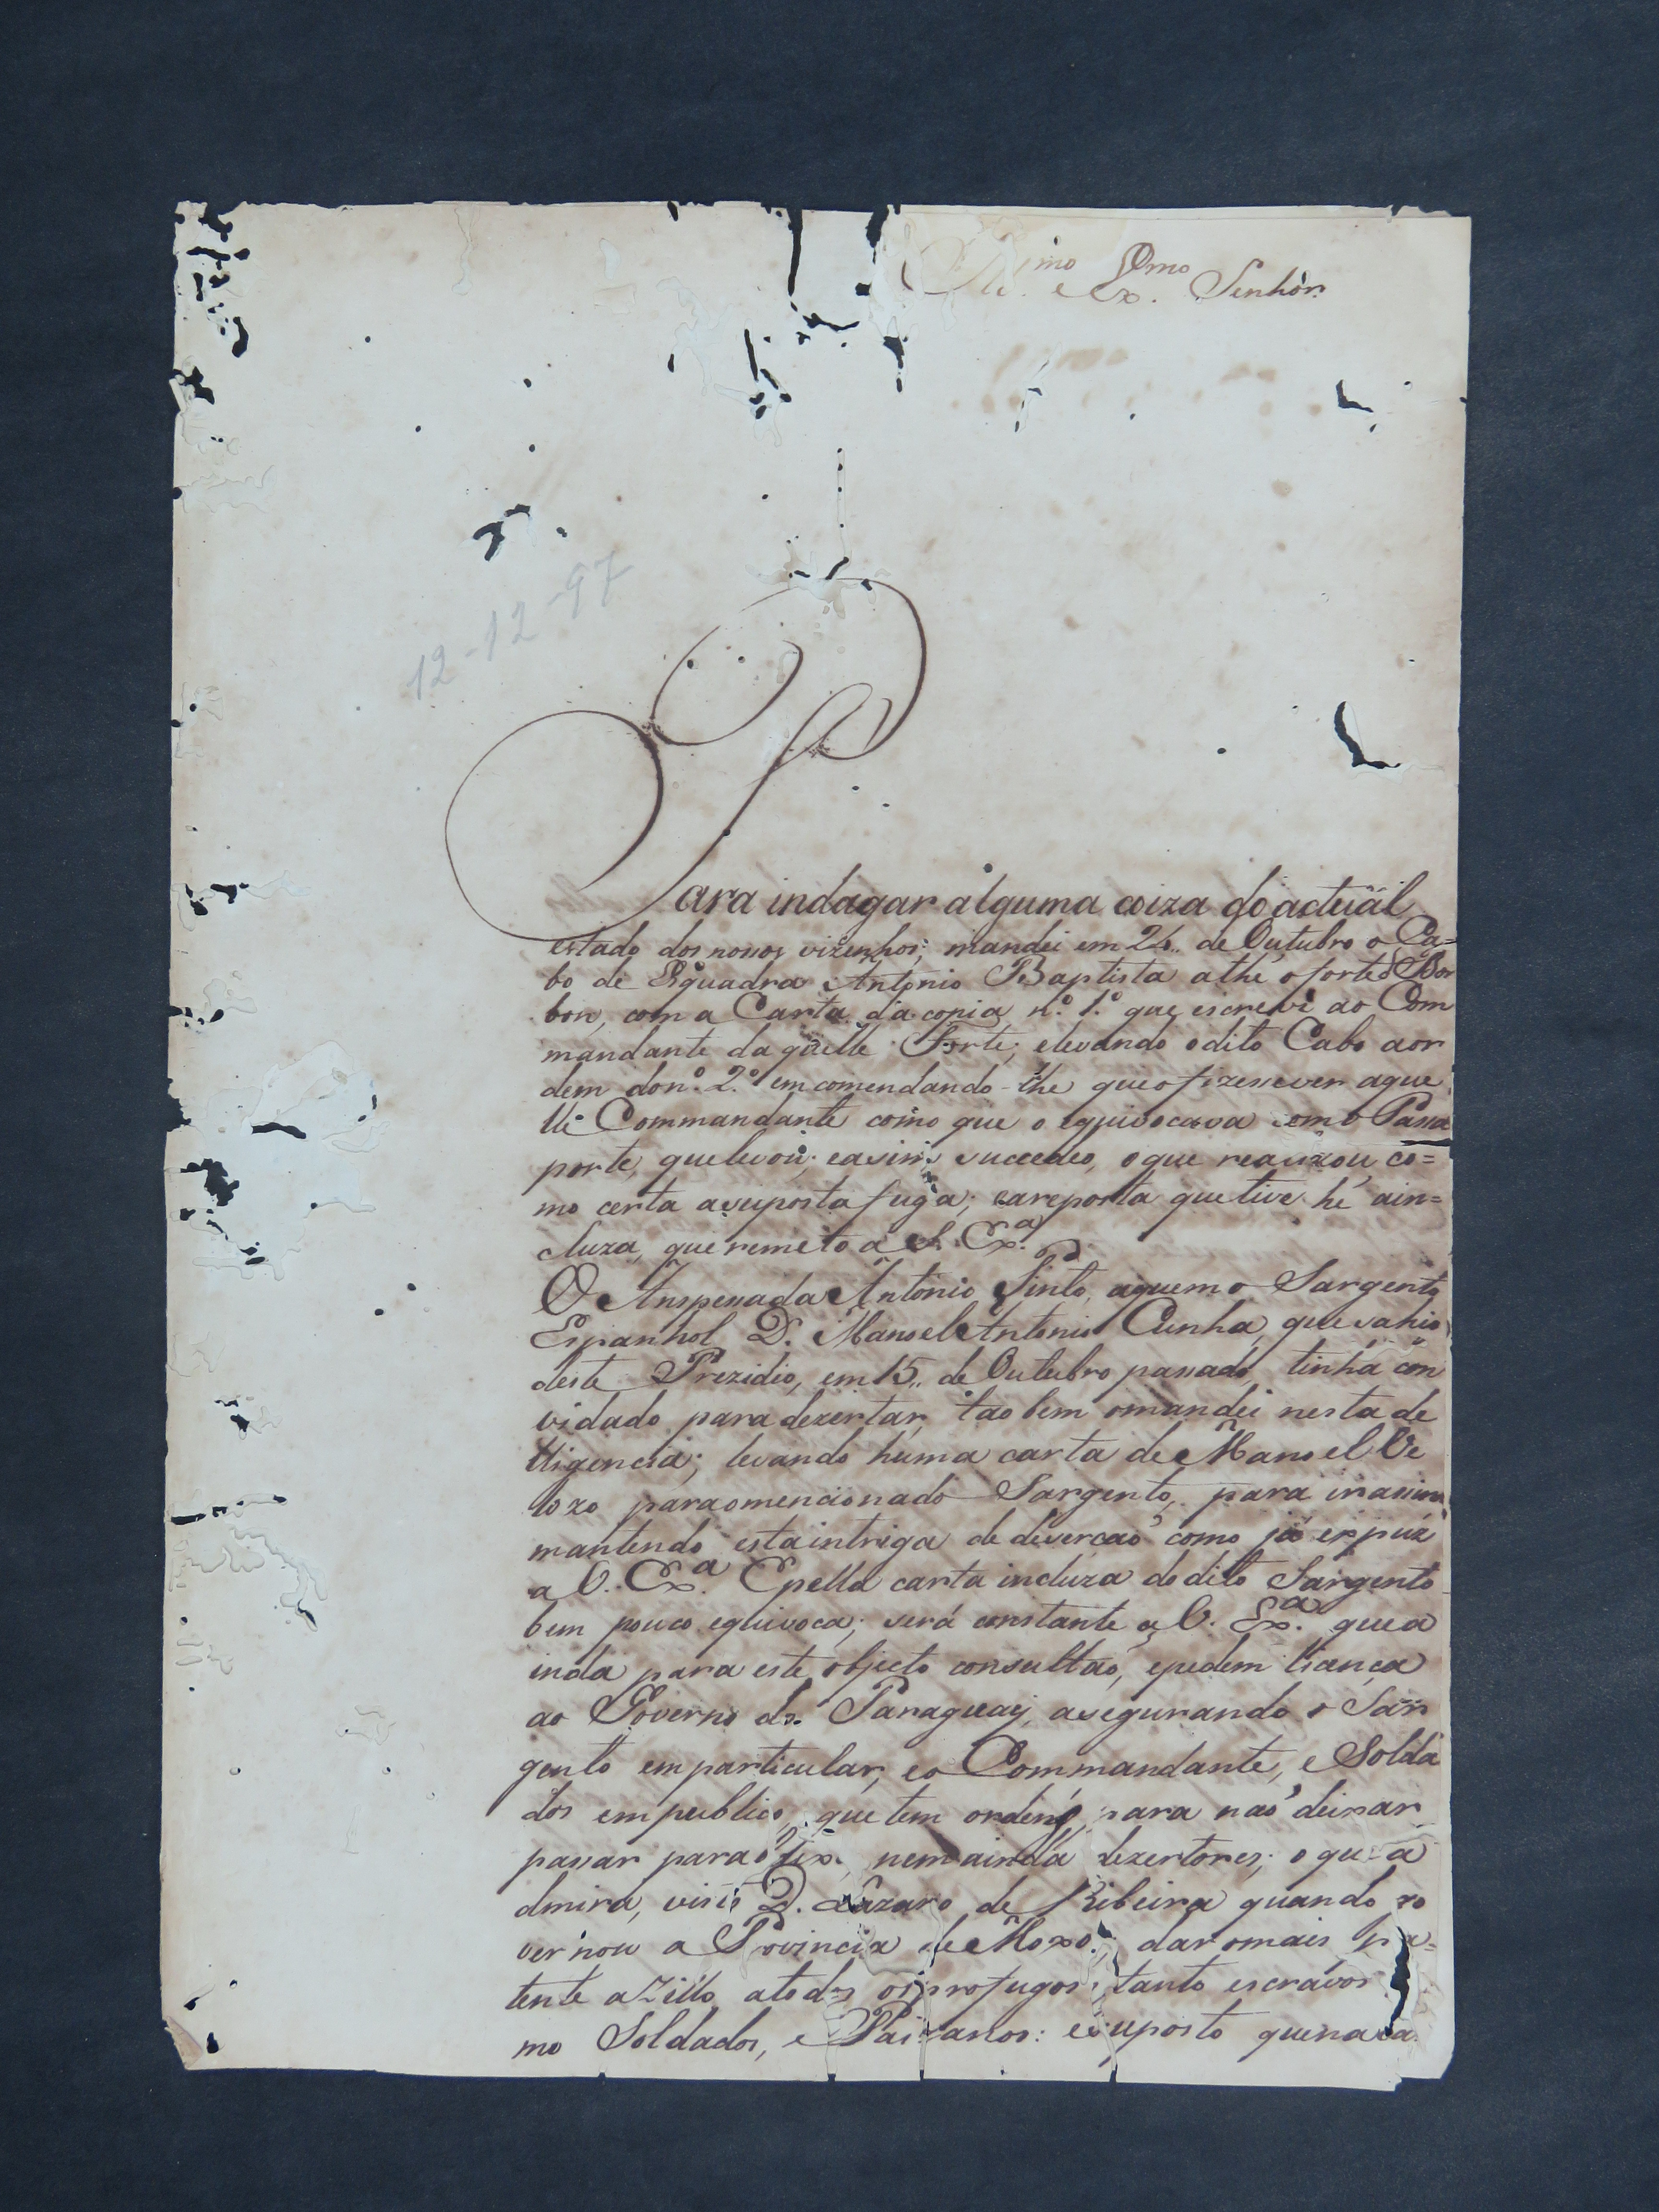 Ill.mo e Ex.mo Senhor.
12-12-97
Para indagar alguma coiza do actuál
estado dos nossos vizenhos; mandei em 24.. de Outubro o Ca=
bo de Esquadra Antonio Baptista athe o forte d Bor
bon, com a Carta da copia n.º 1.º que escrevi ao Com
mandante da quelle Forte; elevando odito Cabo aor
dem don.º 2.º emcomendando-lhe que ofizessever aque
lle Commandante como que o equivocava com o Passa
porte, quelevou; easim succedeo, oque realizou co=
mo certa asuposta fuga; eareposta quetive hé ain=
cluza, que remeto a V. Ex.ª
O Anspessada Antonio Pinto, aquemo Sargento
Espanhol D. Manoel Antonio Cunha, que sahio
deste Prezidio, em 15.. de Outubro passado, tinha con
vidado para dezertar, tãobem omandei nesta de
lligencia; levando huma carta de Manoel Ve
lozo paraomencionado Sargento, para irassim
mantendo estaintriga de diverçaõ como já expuz
a V. Ex.ª Epella carta incluza dodito Sargento
bem pouco equivoca; será constante a V. Ex.ª quea
inda para este objecto consultaõ, epedem licença
ao Governo do Paraguay, asegurando o Sar
gento emparticular, eo Commandante, e Solda
dos empublico, que tem ordens para naõ deixar
passar para nem ainda dezertores; o que a
dmira, visto D. Lazaro de Ribeira quando go
vernou a Provincia de Moxos, dar omais pa=
tente aZillo atodos osprofugos, tanto escravos
mo Soldados, e Paizanos: esuposto quenaca